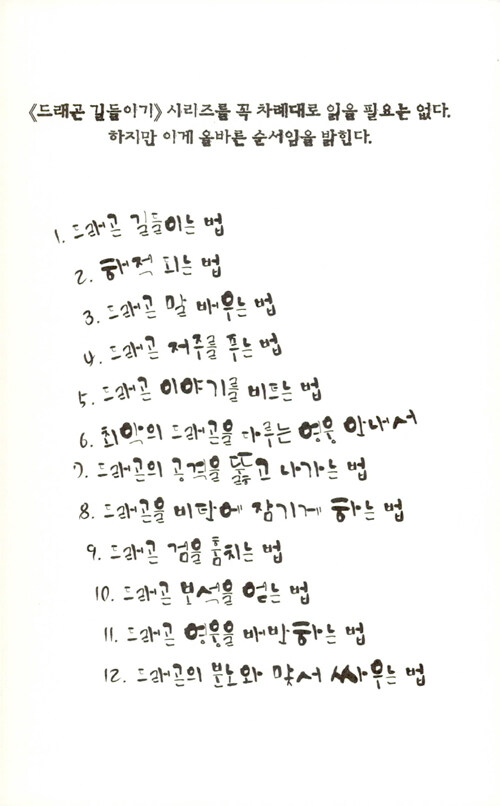 《드래곤 길들이기》 시리즈를 꼭 차례대로 읽을 필요는 없다.
하지만 이게 올바른 순서임을 밝힌다.
1. 드래곤 길들이는 법
2. 해적 되는 법
3. 드래곤 말 배우는 법
4. 드래곤 저주를 푸는 법
5. 드래곤 이야기를 비트는 법
6. 최악의 드래곤을 다루는 영웅 안내서
7. 드래곤의 공격을 뚫고 나가는 법
8. 드래곤을 비탄에 잠기게 하는 법
9. 드래곤 검을 훔치는 법
10. 드래곤 보석을 얻는 법
11. 드래곤 영웅을 배반하는 법
12. 드래곤의 분노와 맞서 싸우는 법